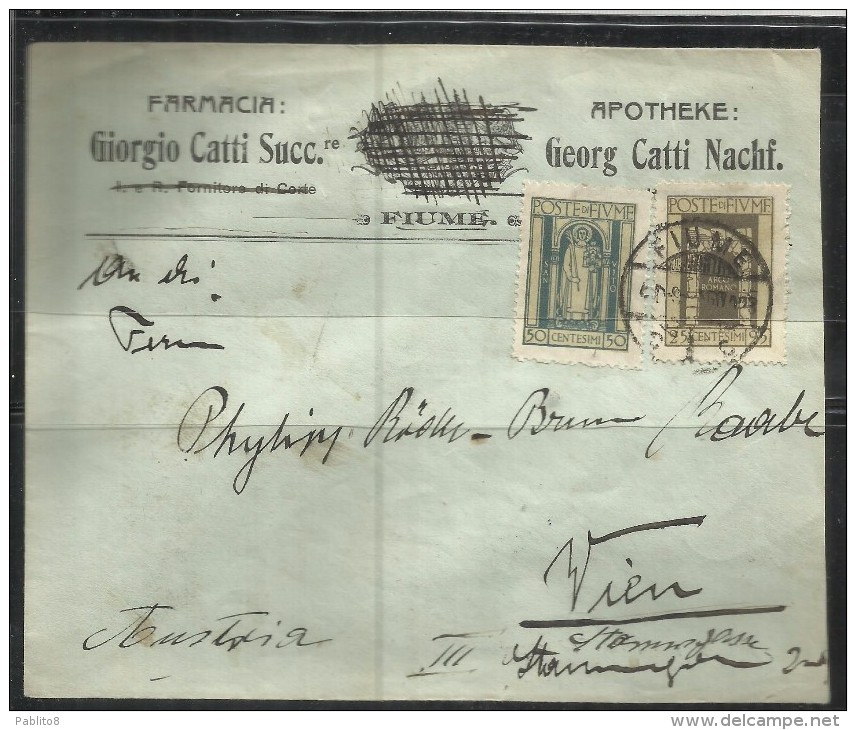 FARMACIA:
Giorgio Catti Succ.re
I. e R. Fornitore di Corte
APOTHEKE:
Georg Catti Nachf.
FIUME.
POSTE DI FIVME
SAN VITO
50 CENTESIMI 50
POSTE DI FIVME
ARCO ROMANO
25 CENTESIMI 25
FIUME
An die
Raabe
Wien
Austria
III
Pablito8
www.delcampe.net